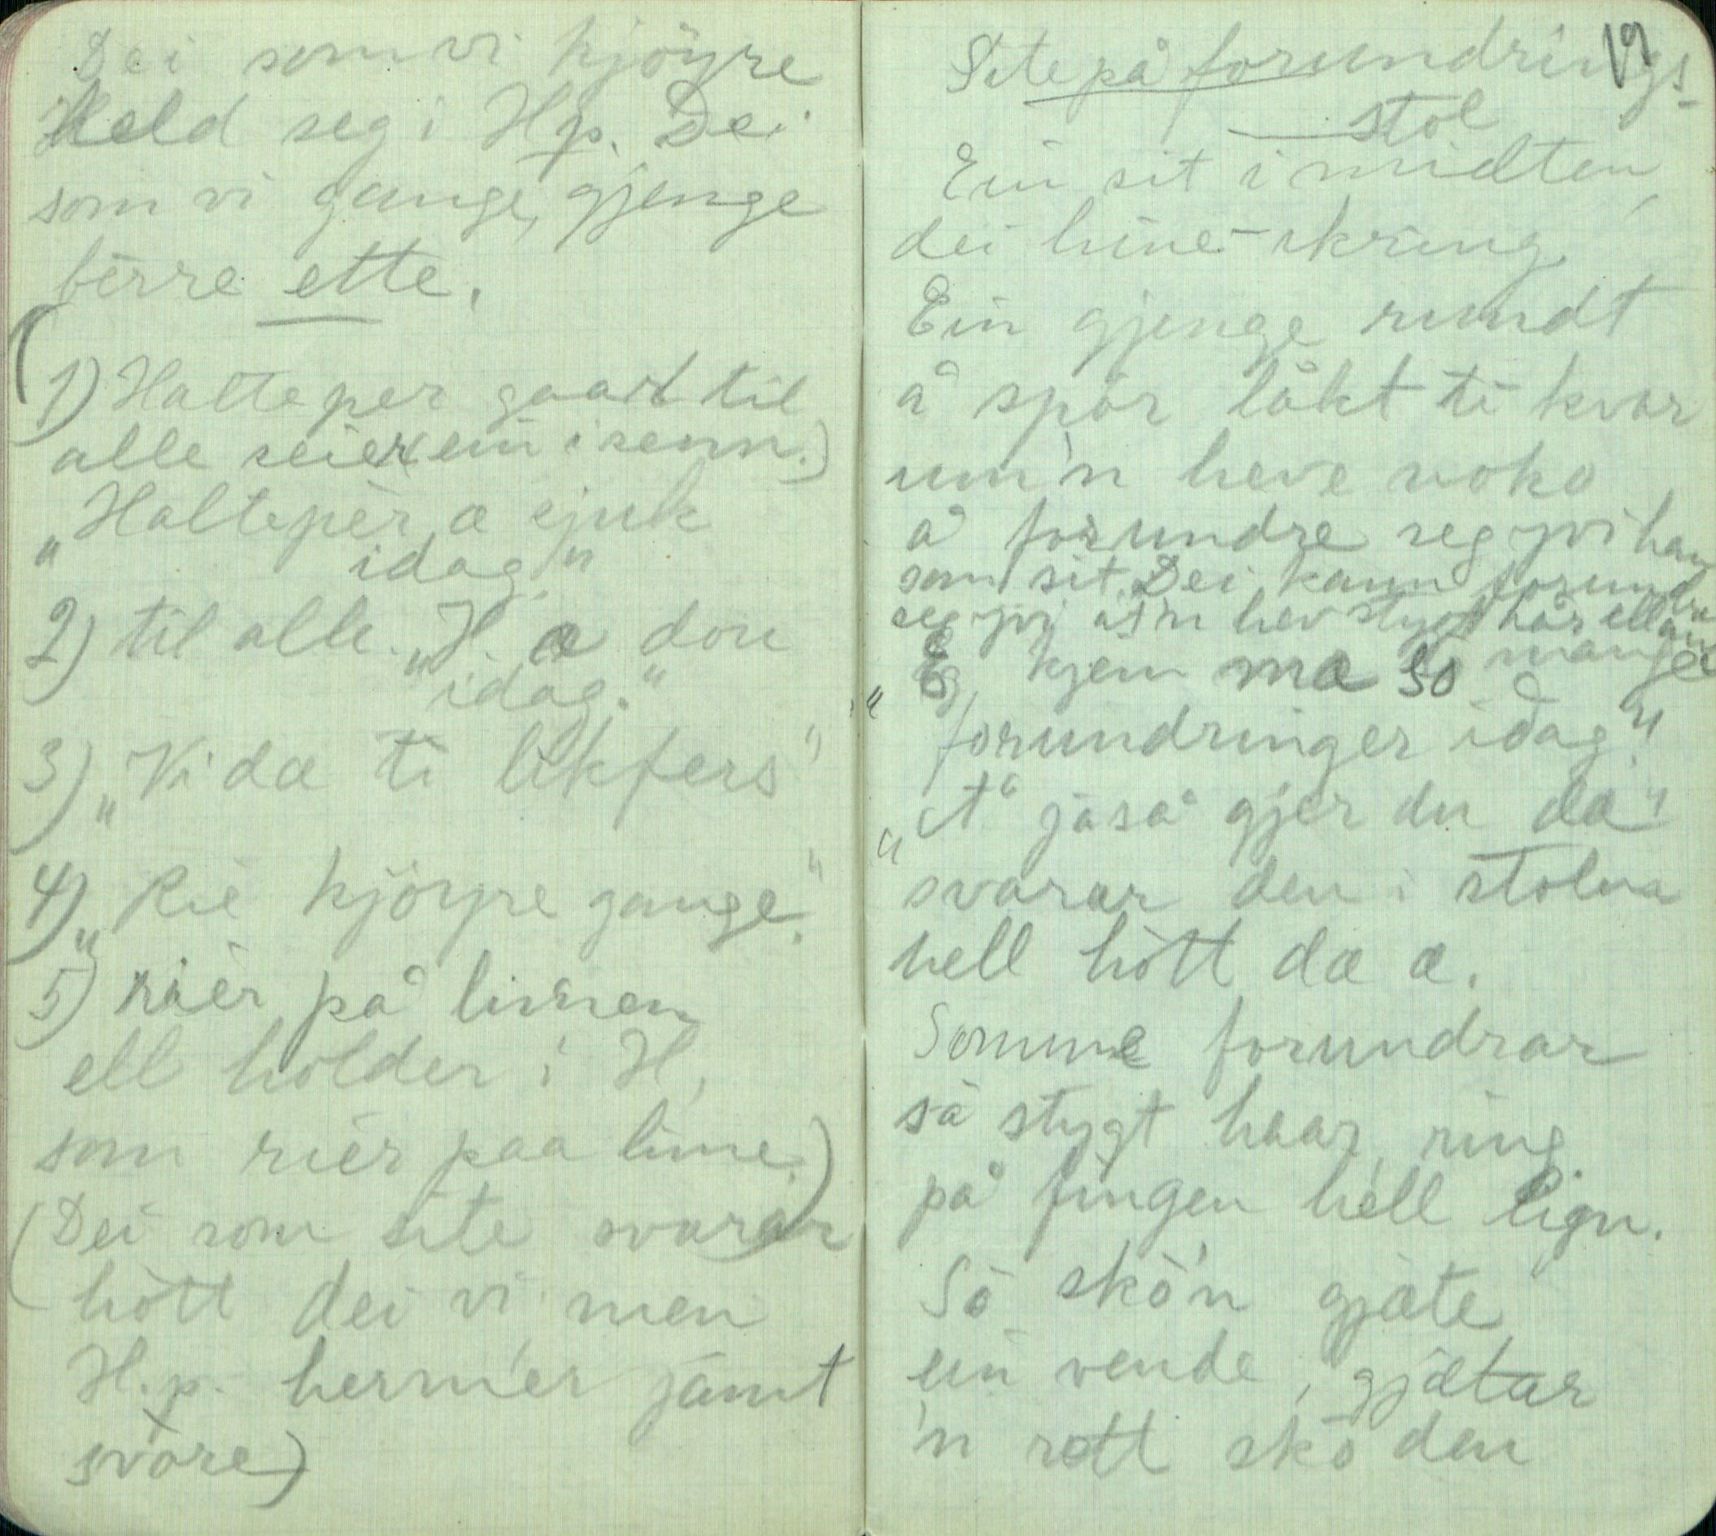 Dei som vi kjöyre
Held seg i Hp. Dei
som vi gange, gjenge
berre ette.
(1) Halteper gaar til
alle seier ein i senn.)
„Halteper æ sjuk
idag"
2) til alle. „H. æ dou
idag."
3) „Vi dæ ti likfers"
4) „Rie kjöyre gange."
5) riër på limen
ell holder i H,
som riër paa lime.)
(Dei som site svarar
hött dei vi men
H.p. hermer jamt
svåre)
19
Site på forundrings-
stol
Ein sit i midten,
dei hine - skring.
Ein gjenge rundt
å spör låkt ti kvar
um'n heve noko
å forundre seg yvi han
som sit. Dei kann forundre
seg yvi at'n hev stygt hår ell ant
„Eg kjem mæ so mange
forundringer idag"
„Å jaså gjer du dæ"
svarar den i stolna
hell hött dæ æ.
Somme forundrar
så stygt haar, ring
på fingen hell lign.
Så skö'n gjæte
ein vende, gjætar
'n rett skö den